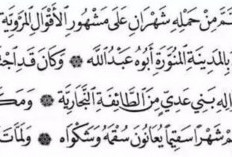 تَمَّ مِنْ حَمْلِهِ شَهْرَانِ عَلَى مَشْهُورِ الْأَقْوَالِ الْمَرْوِيَّةِ
بِالْمَدِينَةِ الْمُنَوَّرَةِ أَبُوهُ عَبْدُ اللَّهِ ۞ وَكَانَ قَدِ اجْتَ
الِهِ بَنِي عَدِيٍّ مِنَ الطَّائِفَةِ النَّجَّارِيَّةِ ۞ وَمَكَ
مْ شَهْرًا سَقِيمًا يُعَانُونَ سُقْمَهُ وَشَكْوَاهُ ۞ وَلَمَّا تَ